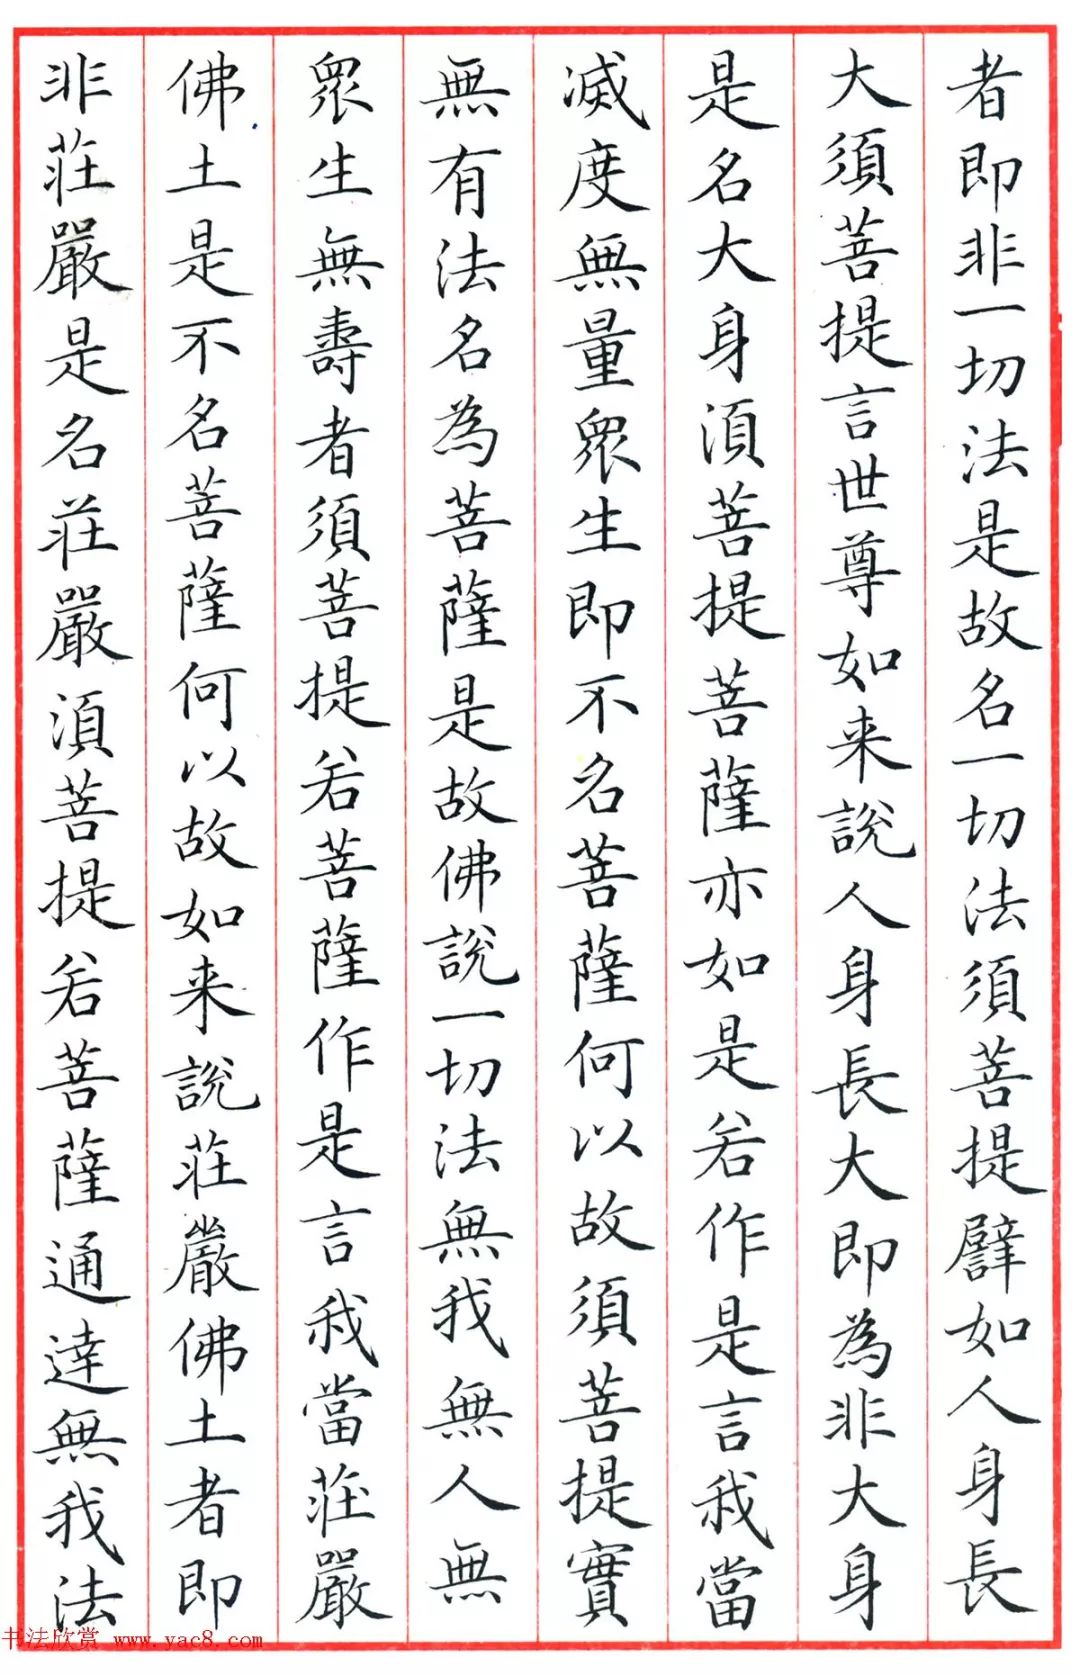 者即非一切法是故名一切法須菩提譬如人身長
大須菩提言世尊如来說人身長大即為非大身
是名大身須菩提菩薩亦如是若作是言我當
滅度無量眾生即不名菩薩何以故須菩提實
無有法名為菩薩是故佛說一切法無我無人無
眾生無壽者須菩提若菩薩作是言我當莊嚴
佛土是不名菩薩何以故如来說莊嚴佛土者即
非莊嚴是名莊嚴須菩提若菩薩通達無我法
书法欣赏 www.yac8.com